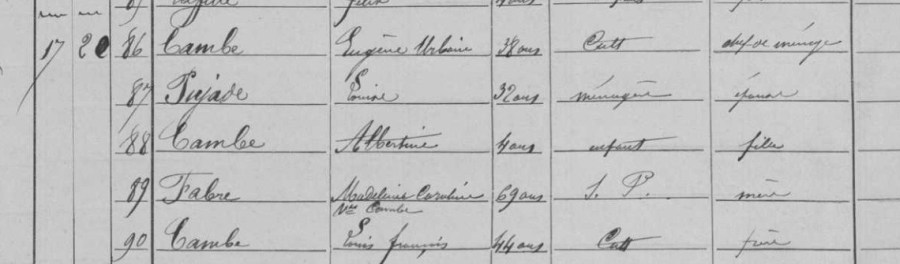 17 20 86 Cambe Eugène Urbain 38 ans Cult chef de ménage
87 Pujade Louise 32 ans ménagère épouse
88 Cambe Albertine 4 ans enfant fille
89 Fabre Madeleine Caroline 69 ans S. P. mère
Vve Cambe
90 Cambe Louis françois 44 ans Cult frère